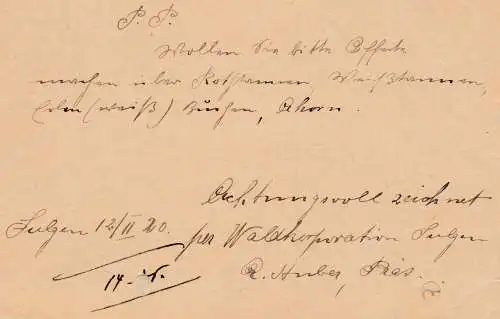 P. P.
Wollen Sie bitte Offerte
machen über Rothtannen, Weißtannen,
Erlen (weiß) Buchen, Ahorn.
Achtungsvoll zeichnet
Sulgen 12/II 20. per Waldkorporation Sulgen
R. Huber, Präs.